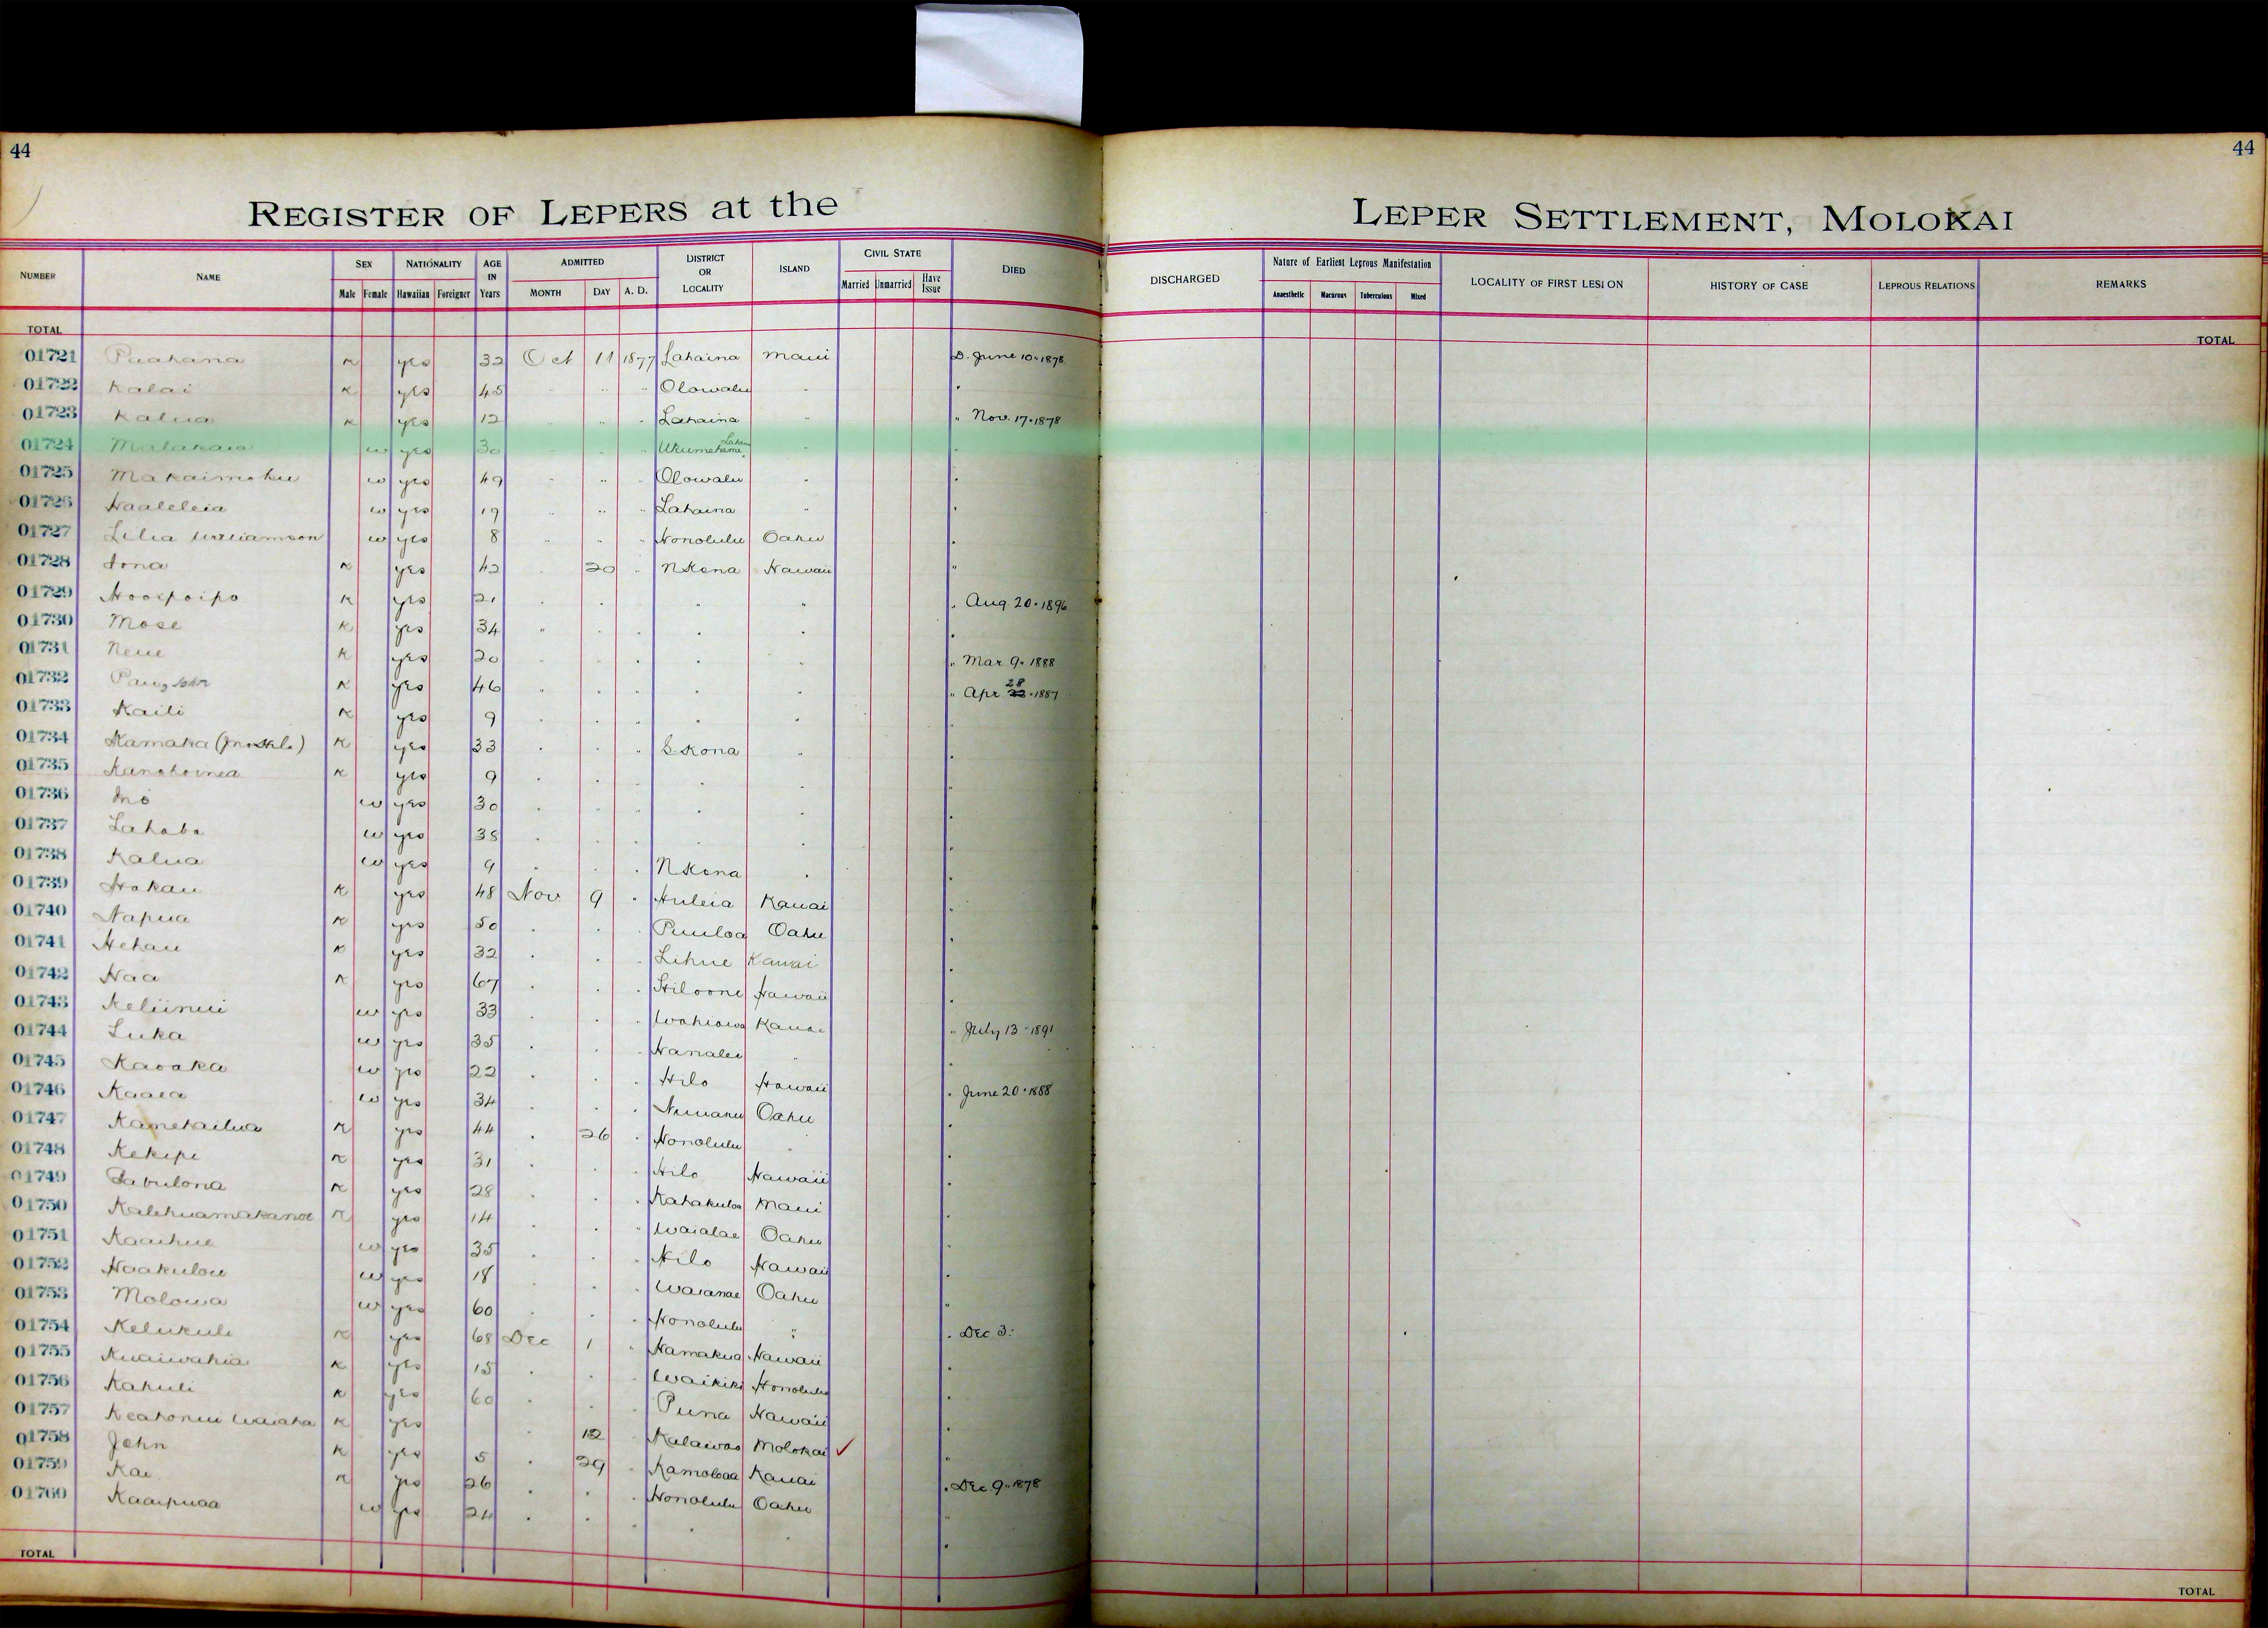 44
44
REGISTER OF LEPERS at the LEPER SETTLEMENT, MOLOKAI
NUMBER NAME SEX NATIONALITY AGE IN Years ADMITTED DISTRICT OR LOCALITY ISLAND CIVIL STATE DIED DISCHARGED Nature of Earliest Leprous Manifestation LOCALITY OF FIRST LESION HISTORY OF CASE LEPROUS RELATIONS REMARKS
Male Female Hawaiian Foreigner MONTH DAY A. D. Married Unmarried Have Issue Anaesthetic Macurous Tuberculous Mixed
TOTAL TOTAL
01721 Puahana K yes 32 Oct 11 1877 Lahaina Maui D. June 10 " 1878
01722 Kalai K yes 45 " " " Olowalu " "
01723 Kalua K yes 12 " " " Lahaina " " Nov. 17 " 1878
01724 Malakaia w yes 30 " " " Ukumehame " "
01725 Makaimoku w yes 49 " " " Olowalu " "
01726 Haaleleia w yes 19 " " " Lahaina " "
01727 Lilia Williamson w yes 8 " " " Honolulu Oahu "
01728 Iona K yes 42 " 20 " N Kona Hawaii "
01729 Hooipoipo K yes 21 " " " " " Aug. 20 " 1896
01730 Mose K yes 34 " " " " " "
01731 Neue K yes 20 " " " " " " Mar 9 " 1888
01732 John K yes 46 " " " " " " Apr 28 " 1887
01733 Kaili K yes 9 " " " " " "
01734 Kamaka K yes 33 " " " S. Kona " "
01735 K yes 9 " " " " " "
01736 w yes 30 " " " " " "
01737 w yes 38 " " " " " "
01738 Kalua w yes 9 " " " N Kona " "
01739 Hokau K yes 48 Nov 9 " Huleia Kauai "
01740 Napua K yes 50 " " " Puuloa Oahu "
01741 Hehau K yes 32 " " " Lihue Kauai "
01742 Naa K yes 67 " " " Hiloone Hawaii "
01743 Keliinui w yes 33 " " " Wahiawa Kauai " July 13 " 1891
01744 Luka w yes 35 " " " Hanalei " "
01745 Kaoaka w yes 22 " " " Hilo Hawaii " June 20 " 1888
01746 Kaaea w yes 34 " " " Nuuanu Oahu "
01747 Kamehailua K yes 44 " 26 " Honolulu " "
01748 Kekipi K yes 31 " " " Hilo Hawaii "
01749 Zabulona K yes 28 " " " Kahakuloa Maui "
01750 Kalehuamakanoe K yes 14 " " " Waialae Oahu "
01751 Kaaihue w yes 35 " " " Hilo Hawaii "
01752 Haakulou w yes 18 " " " Waianae Oahu "
01753 Molowa w yes 60 " " " Honolulu " " Dec 3
01754 Kelukuli K yes 68 Dec 1 " Hamakua Hawaii "
01755 Kuaiwahia K yes 15 " " " Waikiki Honolulu "
01756 Kahuli K yes 60 " " " Puna Hawaii "
01757 K yes " 12 " Kalawao Molokai ✓ "
01758 John K yes 5 " 29 " Kamoloaa Kauai " Dec 9 " 1878
01759 Kai K yes 26 " " " Honolulu Oahu "
01760 Kaaipuaa w yes 24 " " " " " "
TOTAL TOTAL